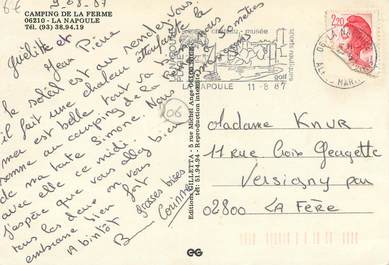 CAMPING DE LA FERME
06210 - LA NAPOULE
Tél. (93) 38.94.19
9.08.87
Guiblitte et
Jean Pierre
le soleil est au rendez-vous.
il fait une chaleur étouffante la
mer est belle tout va
comme au camping de la
de ma tante Simone. Nous
avec elle ce midi.
j'espère que vous allez bien
tous les deux on vous
embrasse bien fort
A bientôt
grosses bises
Corinne
Editions GILLETTA - 5 rue Michel Ange
Tél. 51.94.94 - Reproduction interdite
château - musée
golf
NAPOULE 11-8-87
2,20
06
Madame KNUR
11 rue Croix Georgette
Versigny par
02800 LA FÈRE
EG